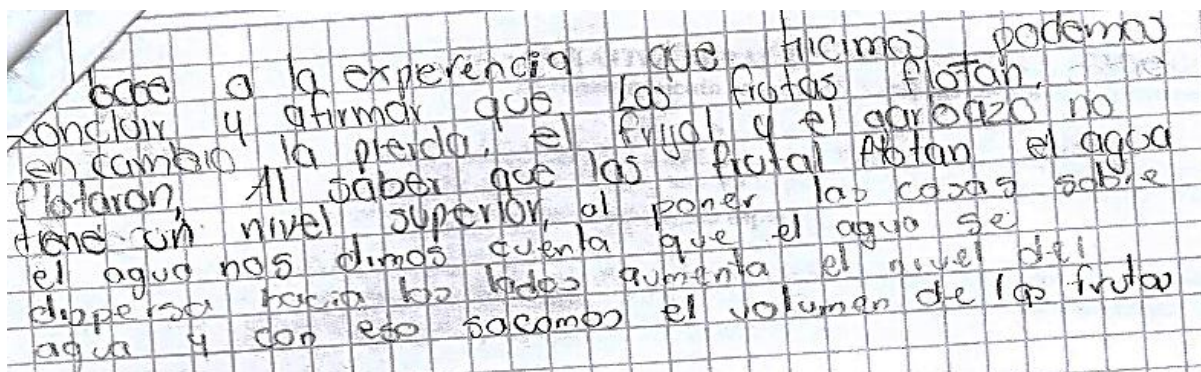 base a la experencia que Hicimos podemos
concluir y afirmar que Las frutas flotan,
en cambio la pieida, el frijal y el garbazo no
flotaron, Al saber que las frutal flotan el agua
tiene un nivel superior, al poner las cosas sobre
el agua nos dimos cuenta que el agua se
dispersa hacia los lados aumenta el nivel del
agua y con eso sacamos el volumen de las frutas